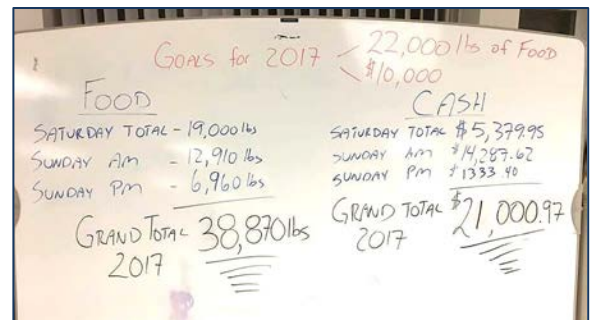 GOALS for 2017 22,000 lbs of FOOD
$10,000
FOOD
SATURDAY TOTAL - 19,000 lbs
SUNDAY AM - 12,910 lbs
SUNDAY PM - 6,960 lbs
GRAND TOTAL 38,870 lbs
2017
CASH
SATURDAY TOTAL $5,379.95
SUNDAY AM $14,287.62
SUNDAY PM $1333.40
GRAND TOTAL $21,000.97
2017